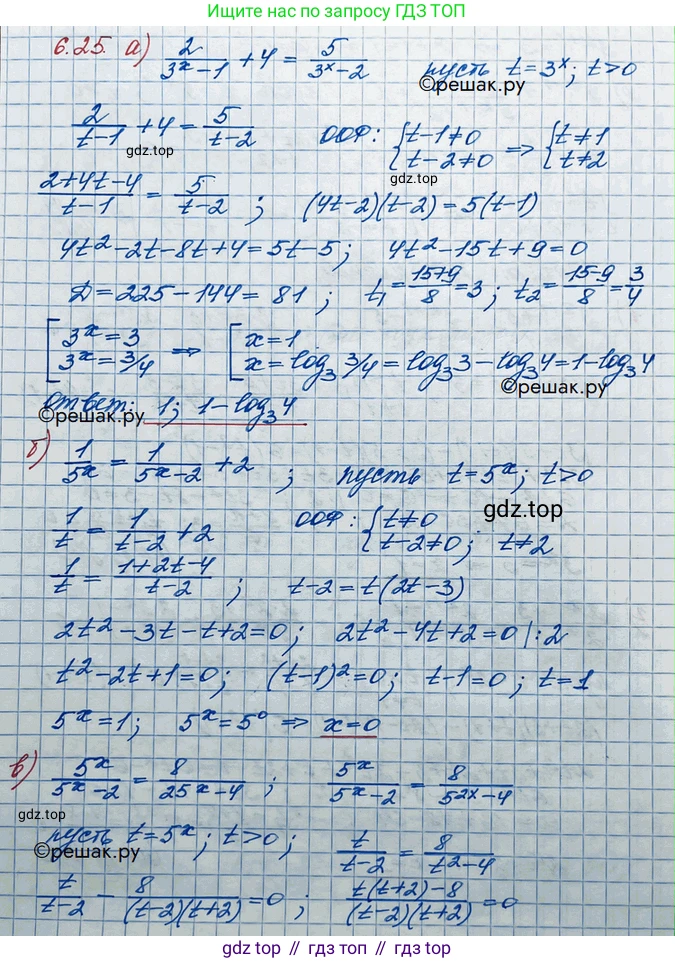 Ищите решение по запросу ГДЗ ТОП
6.25. а) 2/(3^x-1) + 4 = 5/(3^x-2) пусть t=3^x; t>0
©решак.ру
2/(t-1) + 4 = 5/(t-2) ООФ: {t-1≠0 t-2≠0 => {t≠1 t≠2
gdz.top gdz.top
(2+4t-4)/(t-1) = 5/(t-2); (4t-2)(t-2)=5(t-1)
4t²-2t-8t+4=5t-5; 4t²-15t+9=0
D=225-144=81; t₁=(15+9)/8=3; t₂=(15-9)/8=3/4
[3^x=3 3^x=3/4 => [x=1 x=log₃3/4=log₃3-log₃4=1-log₃4
©решак.ру
ответ: 1; 1-log₃4
©решак.ру
б) 1/5^x = 1/(5^x-2) + 2; пусть t=5^x; t>0
gdz.top
1/t = 1/(t-2) + 2 ООФ: {t≠0 t-2≠0; t≠2
1/t = (1+2t-4)/(t-2); t-2=t(2t-3)
2t²-3t-t+2=0; 2t²-4t+2=0 |:2
t²-2t+1=0; (t-1)²=0; t-1=0; t=1
5^x=1; 5^x=5⁰ => x=0
в) 5^x/(5^x-2) = 8/(25^x-4); 5^x/(5^x-2) = 8/(5^2x-4)
gdz.top
пусть t=5^x; t>0; t/(t-2) = 8/(t²-4)
©решак.ру
t/(t-2) - 8/((t-2)(t+2)) = 0; (t(t+2)-8)/((t-2)(t+2)) = 0
gdz.top
gdz.top // гдз.топ // gdz.top